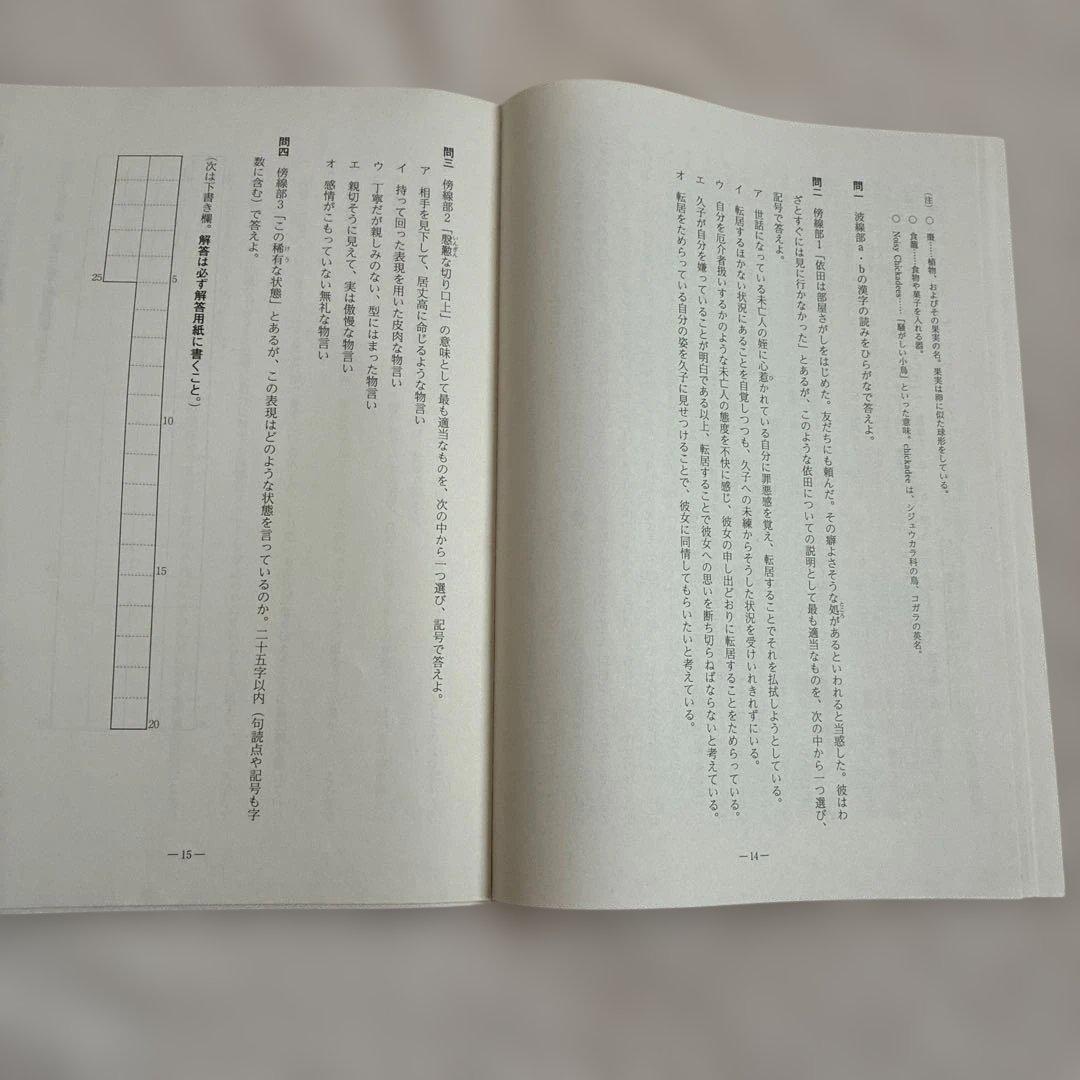 (注) ○ 棗……植物、およびその果実の名。果実は卵に似た球形をしている。
○ 食籠……食物や菓子を入れる器。
○ Noisy Chickadees……「騒がしい小鳥」といった意味。chickadee は、シジュウカラ科の鳥、コガラの英名。
問一 波線部a・bの漢字の読みをひらがなで答えよ。
問二 傍線部1「依田は部屋さがしをはじめた。友だちにも頼んだ。その癖よさそうな処があるといわれると当惑した。彼はわ
ざとすぐには見に行かなかった」とあるが、このような依田についての説明として最も適当なものを、次の中から一つ選び、
記号で答えよ。
ア 世話になっている未亡人の姪に心惹かれている自分に罪悪感を覚え、転居することでそれを払拭しようとしている。
イ 転居するほかない状況にあることを自覚しつつも、久子への未練からそうした状況を受けいれきれずにいる。
ウ 自分を厄介者扱いするかのような未亡人の態度を不快に感じ、彼女の申し出どおりに転居することをためらっている。
エ 久子が自分を嫌っていることが明白である以上、転居することで彼女への思いを断ち切らねばならないと考えている。
オ 転居をためらっている自分の姿を久子に見せつけることで、彼女に同情してもらいたいと考えている。
—14—
問三 傍線部2「慇懃な切り口上」の意味として最も適当なものを、次の中から一つ選び、記号で答えよ。
ア 相手を見下して、居丈高に命じるような物言い
イ 持って回った表現を用いた皮肉な物言い
ウ 丁寧だが親しみのない、型にはまった物言い
エ 親切そうに見えて、実は傲慢な物言い
オ 感情がこもっていない無礼な物言い
問四 傍線部3「この稀有な状態」とあるが、この表現はどのような状態を言っているのか。二十五字以内(句読点や記号も字
数に含む)で答えよ。
(次は下書き欄。解答は必ず解答用紙に書くこと。)
5
10
15
20
25
—15—